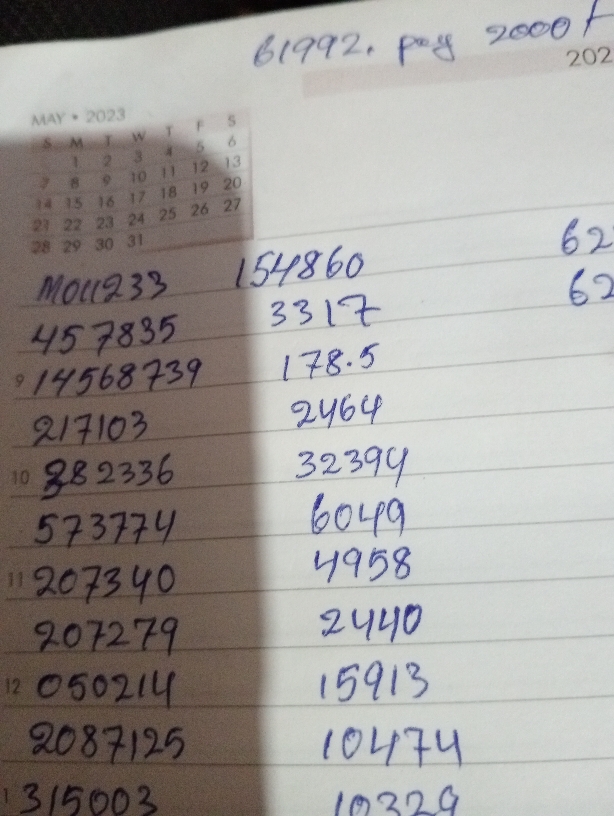 61992. pay 2000/
202
MAY • 2023
S M T W T F S
1 2 3 4 5 6
7 8 9 10 11 12 13
14 15 16 17 18 19 20
21 22 23 24 25 26 27
28 29 30 31
M011233 154860 62
457835 3317 62
9 14568739 178.5
217103 2464
10 382336 32394
573774 6049
11 207340 4958
207279 2440
12 050214 15913
2087125 10474
1 315003 10329